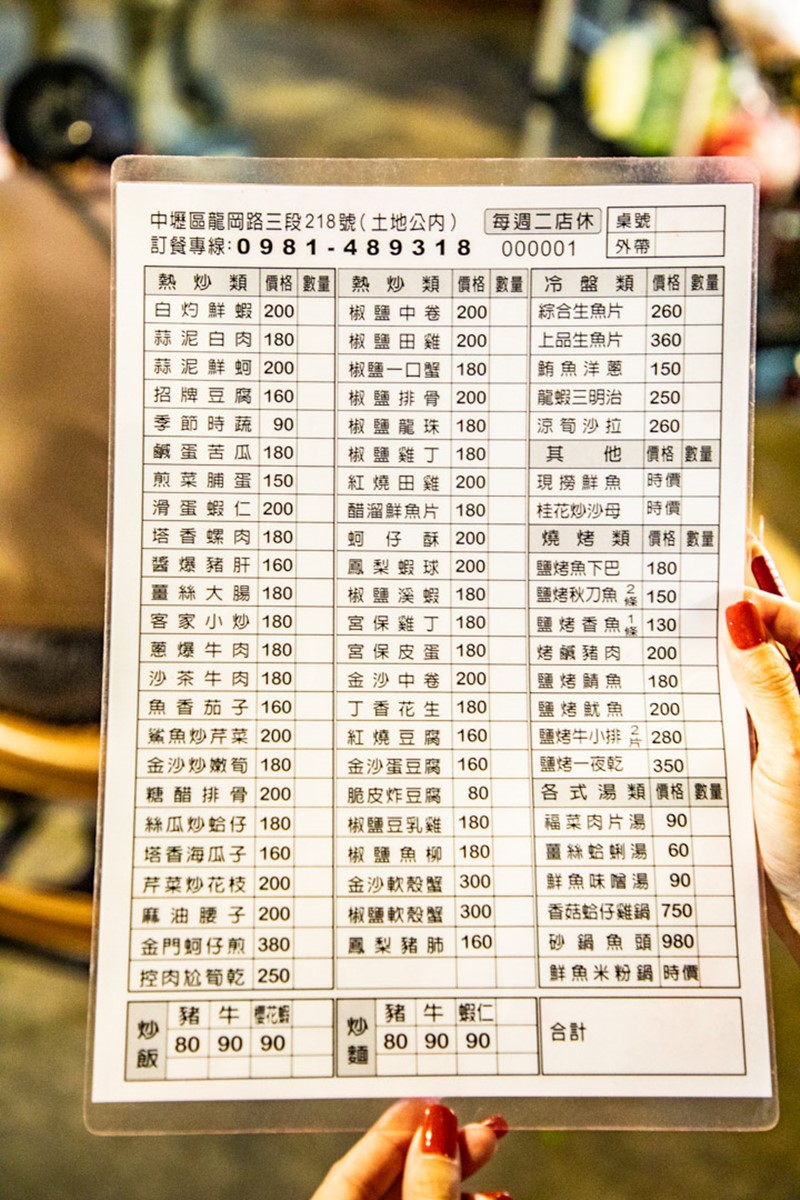 中壢區龍岡路三段218號(土地公內)
每週二店休
桌號
訂餐專線:0981-489318
000001
外帶
熱炒類 價格 數量
白灼鮮蝦 200
蒜泥白肉 180
蒜泥鮮蚵 200
招牌豆腐 160
季節時蔬 90
鹹蛋苦瓜 180
煎菜脯蛋 150
滑蛋蝦仁 200
塔香螺肉 180
醬爆豬肝 160
薑絲大腸 180
客家小炒 180
蔥爆牛肉 180
沙茶牛肉 180
魚香茄子 160
鯊魚炒芹菜 200
金沙炒嫩筍 180
糖醋排骨 200
絲瓜炒蛤仔 180
塔香海瓜子 160
芹菜炒花枝 200
麻油腰子 200
金門蚵仔煎 380
控肉尬筍乾 250
熱炒類 價格 數量
椒鹽中卷 200
椒鹽田雞 200
椒鹽一口蟹 180
椒鹽排骨 200
椒鹽龍珠 180
椒鹽雞丁 180
紅燒田雞 200
醋溜鮮魚片 180
蚵仔酥 200
鳳梨蝦球 200
椒鹽溪蝦 180
宮保雞丁 180
宮保皮蛋 180
金沙中卷 200
丁香花生 180
紅燒豆腐 160
金沙蛋豆腐 160
脆皮炸豆腐 80
椒鹽豆乳雞 180
椒鹽魚柳 180
金沙軟殼蟹 300
椒鹽軟殼蟹 300
鳳梨豬肺 160
冷盤類 價格 數量
綜合生魚片 260
上品生魚片 360
鮪魚洋蔥 150
龍蝦三明治 250
涼筍沙拉 260
其他 價格 數量
現撈鮮魚 時價
桂花炒沙母 時價
燒烤類 價格 數量
鹽烤魚下巴 180
鹽烤秋刀魚 2條 150
鹽烤香魚 1條 130
烤鹹豬肉 200
鹽烤鯖魚 180
鹽烤魷魚 200
鹽烤牛小排 2片 280
鹽烤一夜乾 350
各式湯類 價格 數量
福菜肉片湯 90
薑絲蛤蜊湯 60
鮮魚味噌湯 90
香菇蛤仔雞鍋 750
砂鍋魚頭 980
鮮魚米粉鍋 時價
炒飯 豬 牛 櫻花蝦
80 90 90
炒麵 豬 牛 蝦仁
80 90 90
合計